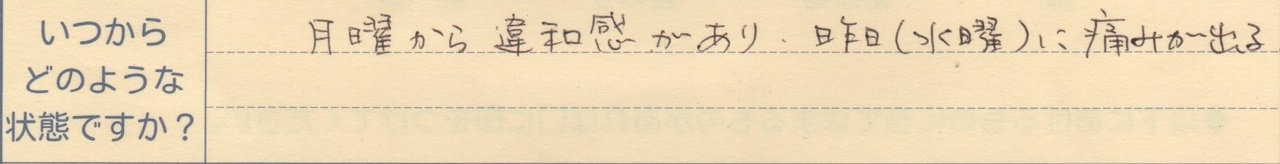 いつから
どのような
状態ですか？
月曜から違和感があり、昨日(水曜)に痛みが出る